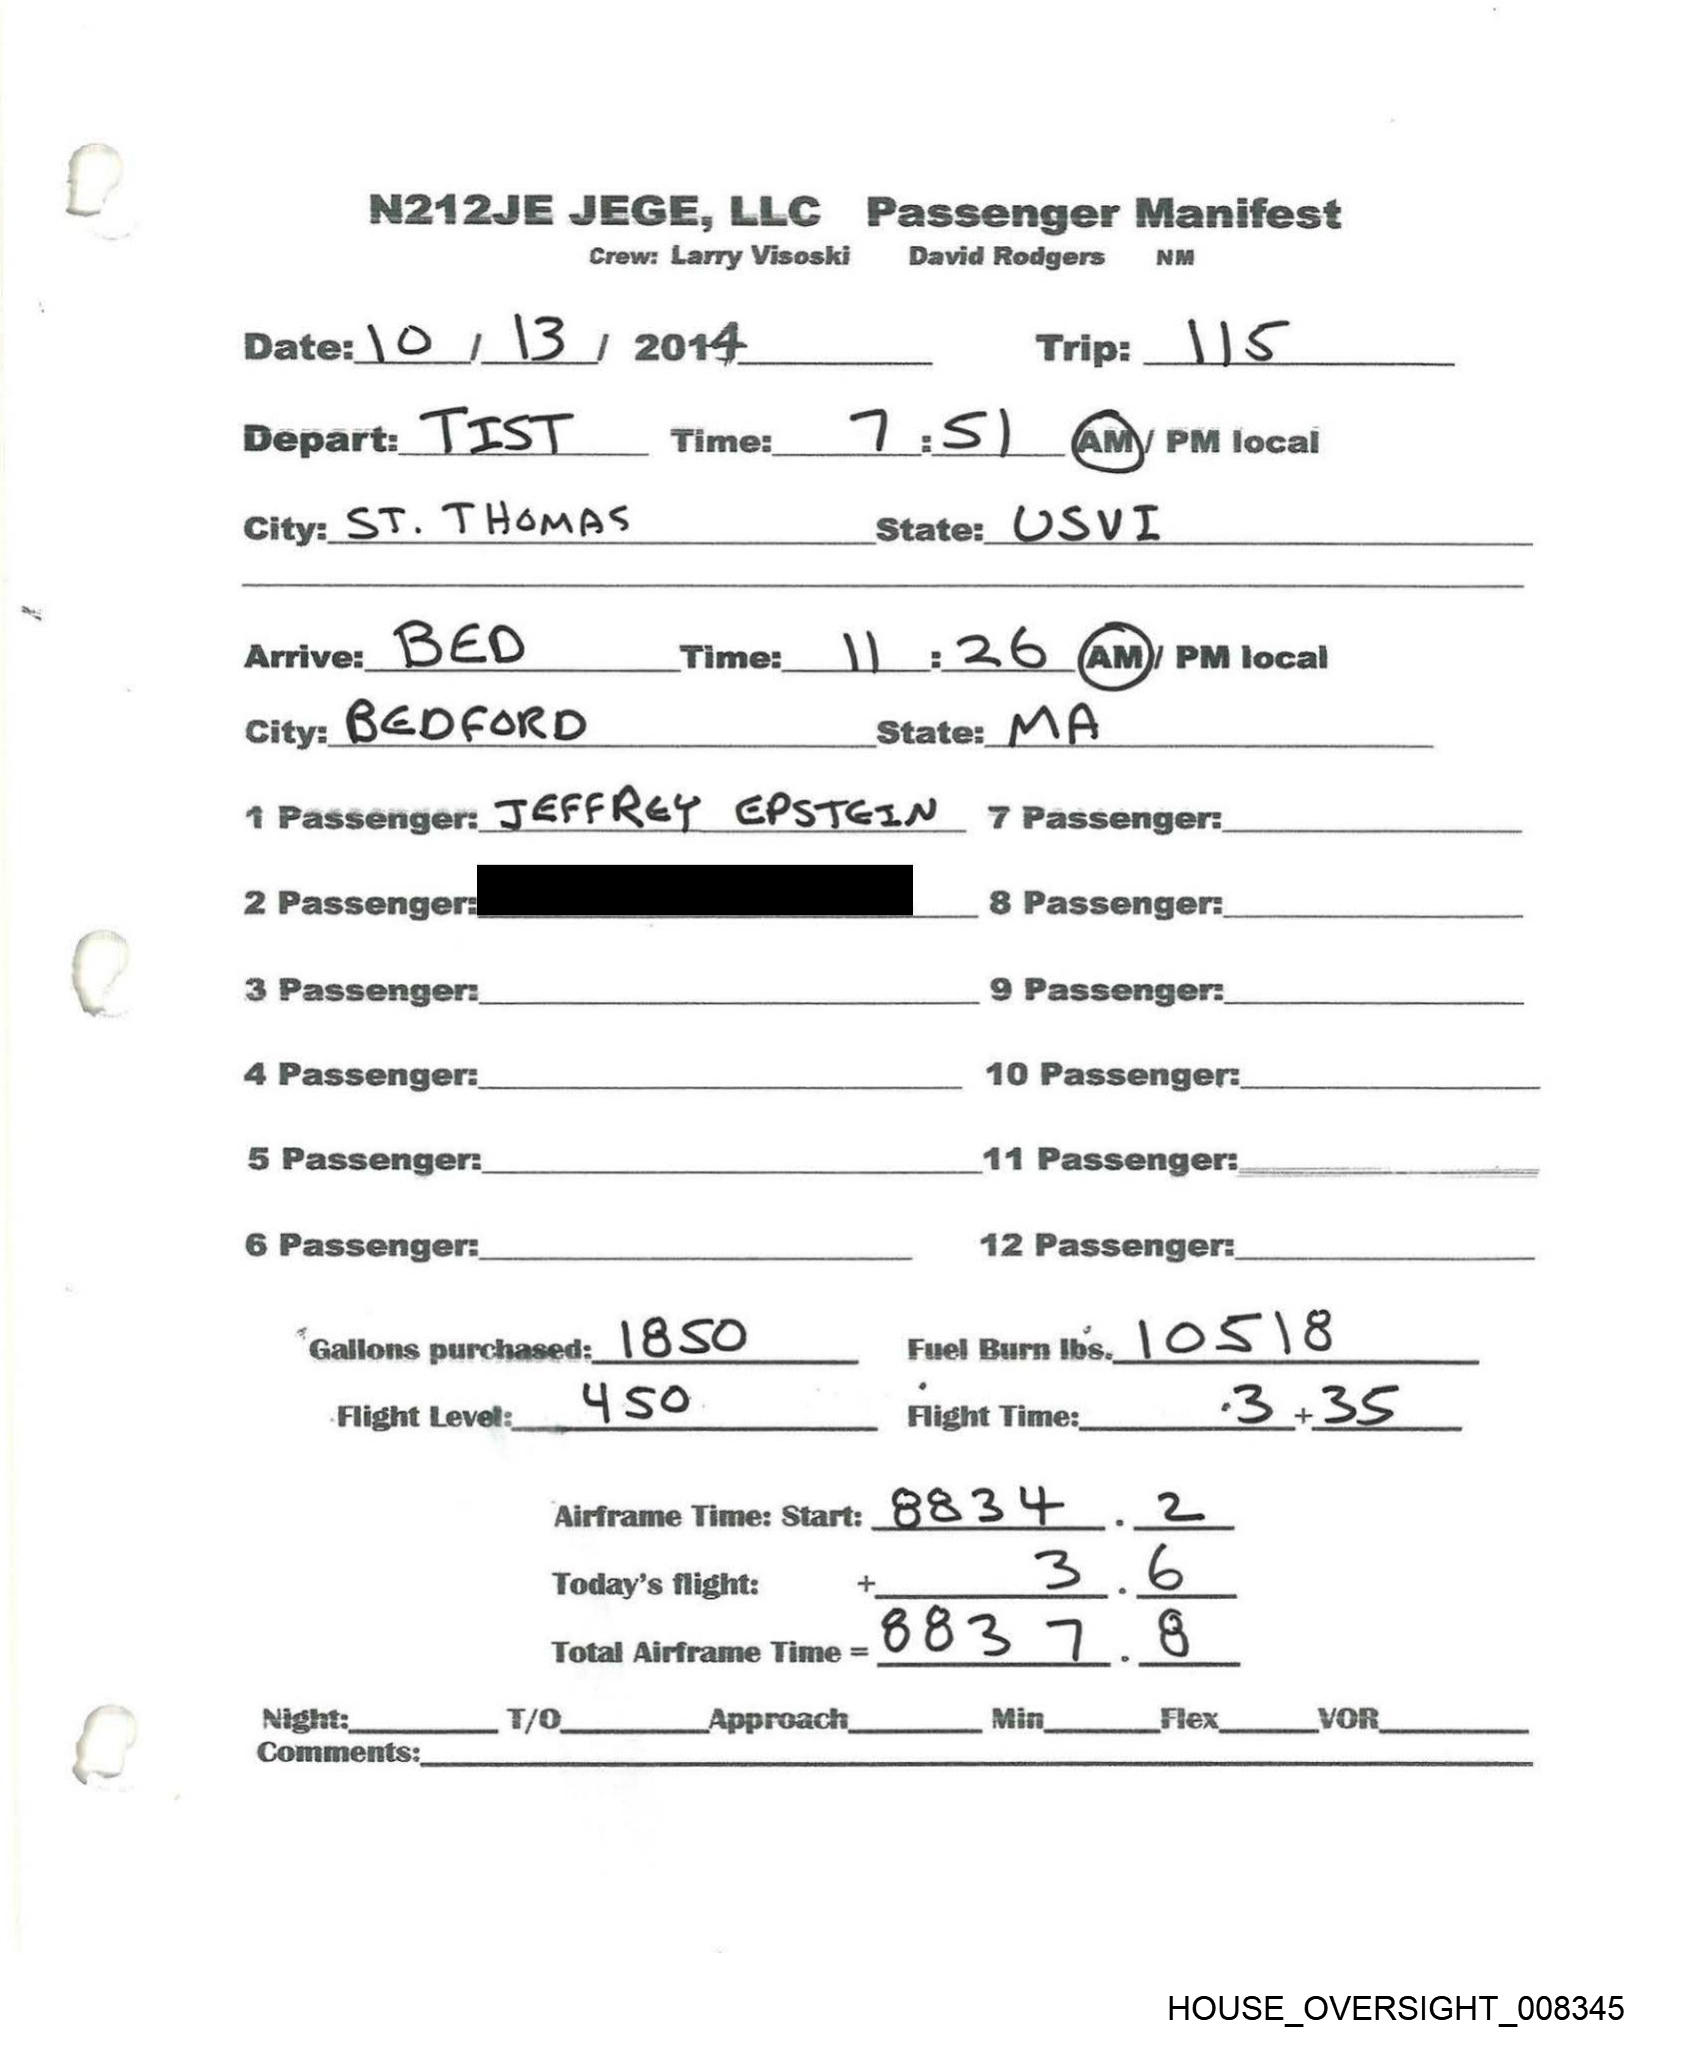 N212JE JEGE, LLC Passenger Manifest
Crew: Larry Visoski David Rodgers NM
Date: 10 / 13 / 2014 Trip: 115
Depart: TIST Time: 7 : 51 AM / PM local
City: ST. THOMAS State: USVI
Arrive: BED Time: 11 : 26 AM / PM local
City: BEDFORD State: MA
1 Passenger: JEFFREY EPSTEIN 7 Passenger:
2 Passenger: 8 Passenger:
3 Passenger: 9 Passenger:
4 Passenger: 10 Passenger:
5 Passenger: 11 Passenger:
6 Passenger: 12 Passenger:
Gallons purchased: 1850 Fuel Burn lbs. 10518
Flight Level: 450 Flight Time: 3 + 35
Airframe Time: Start: 8834 . 2
Today's flight: + 3 . 6
Total Airframe Time = 8837 . 8
Night: T/O Approach Min Flex VOR
Comments:
HOUSE_OVERSIGHT_008345